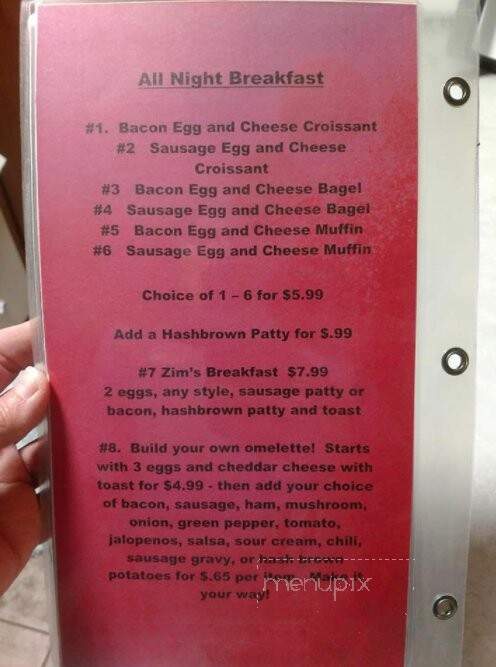 All Night Breakfast
#1. Bacon Egg and Cheese Croissant
#2 Sausage Egg and Cheese
Croissant
#3 Bacon Egg and Cheese Bagel
#4 Sausage Egg and Cheese Bagel
#5 Bacon Egg and Cheese Muffin
#6 Sausage Egg and Cheese Muffin
Choice of 1 – 6 for $5.99
Add a Hashbrown Patty for $.99
#7 Zim's Breakfast $7.99
2 eggs, any style, sausage patty or
bacon, hashbrown patty and toast
#8. Build your own omelette! Starts
with 3 eggs and cheddar cheese with
toast for $4.99 - then add your choice
of bacon, sausage, ham, mushroom,
onion, green pepper, tomato,
jalopenos, salsa, sour cream, chili,
sausage gravy, or hash brown
potatoes for $.65 per item. Make it
your way!
menupix